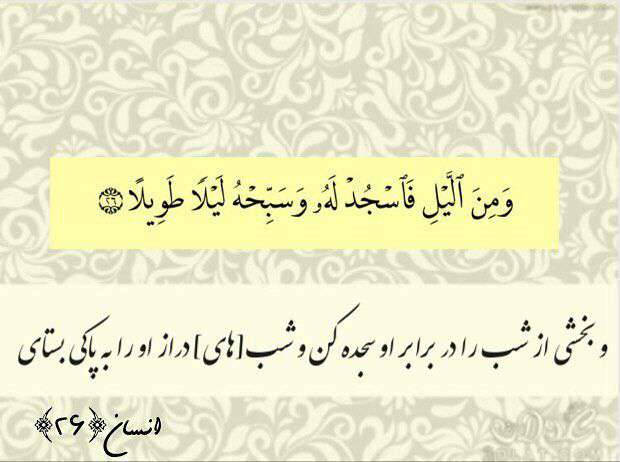 وَمِنَ ٱلَّيْلِ فَٱسْجُدْ لَهُۥ وَسَبِّحْهُ لَيْلًا طَوِيلًا ۝٢٦
و بخشی از شب را در برابر او سجده کن و شب[های] دراز او را به پاکی بستای
انسان ﴿۲۶﴾